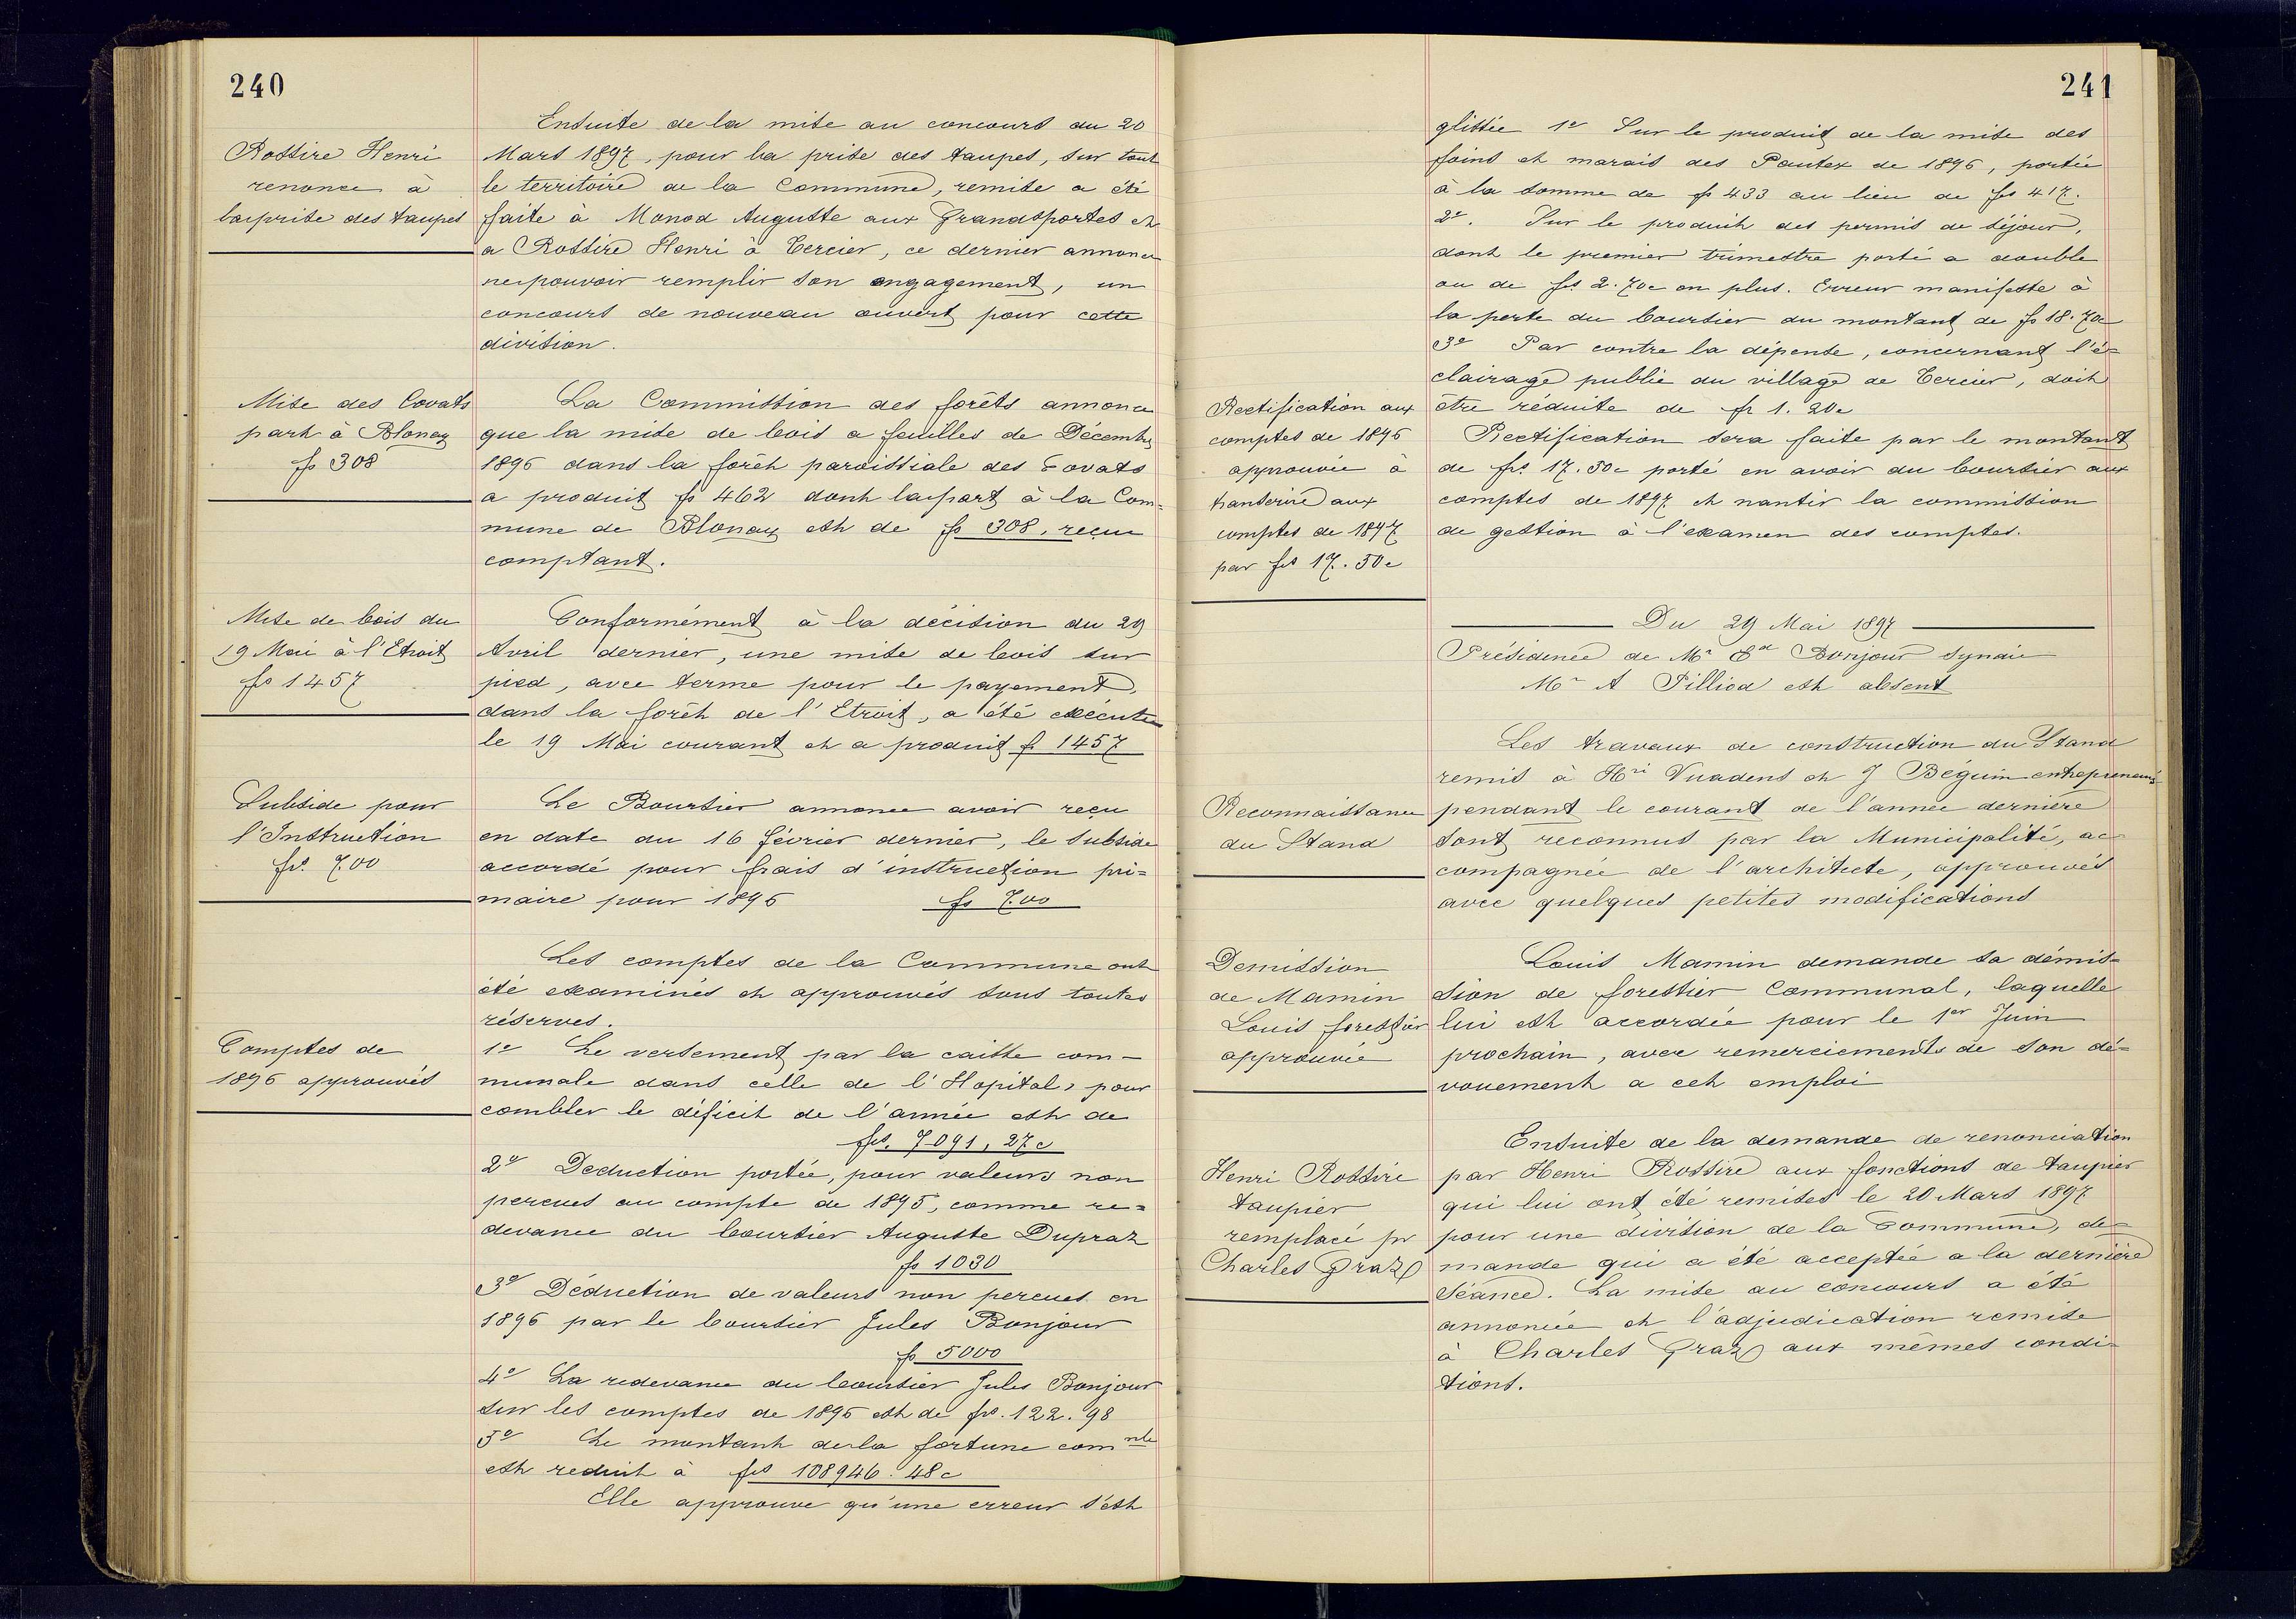 240
Ensuite de la mise au concours du 20
Rossire Henri
renonce à
la prise des taupes
Mars 1897, pour la prise des taupes, sur tout
le territoire de la Commune, remise a été
faite à Monod Auguste aux Grandsportes et
a Rossire Henri à Tercier, ce dernier annonce
ne pouvoir remplir son engagement, un
concours de nouveau ouvert pour cette
division.
Mise des Covats
part à Blonay
fs 308
La Commission des forêts annonce
que la mise de bois a feuilles de Décembre
1896 dans la forêt paroissiale des Covats
a produit fs 462 dont la part à la Com-
mune de Blonay est de fs 308, reçue
comptant.
Mise de bois du
19 Mai à l'Etroit
fs 1457
Conformément à la décision du 29
Avril dernier, une mise de bois sur
pied, avec terme pour le payement,
dans la forêt de l'Etroit, a été exécutée
le 19 Mai courant et a produit f 1457
Subside pour
l'Instruction
frs. 700
Le Boursier annonce avoir reçu
en date du 16 février dernier, le subside
accordé pour frais d'instruction pri=
maire pour 1896 fs 700
Comptes de
1896 approuvés
Les comptes de la Commune ont
été examinés et approuvés sous toutes
réserves.
1o Le versement par la caisse com-
munale dans celle de l'Hopital, pour
combler le déficit de l'année est de
frs. 7091, 27c
2o Deduction portée, pour valeurs non
percues au compte de 1895, comme re=
devance du boursier Auguste Dupraz
fs 1030
3o Déduction de valeurs non percues en
1896 par le boursier Jules Bonjour
fs 5000
4o La redevance du boursier Jules Bonjour
sur les comptes de 1896 est de frs. 122.98
5o Le montant de la fortune comnle
est reduit à frs 108946.48c
Elle approuve qu'une erreur s'est
241
glissée 1o Sur le produit de la mise des
foins et marais des Pautex de 1896, portée
à la somme de fs 433 au lieu de frs 417.
2o. Sur le produit des permis de séjour,
dont le premier trimestre porté a double
ou de frs 2.70c en plus. Erreur manifeste à
la perte du boursier du montant de fs 18.70c
3o Par contre la dépense, concernant l'é=
clairage public du village de Tercier, doit
être réduite de fr 1.20c
Rectification aux
comptes de 1896
approuvée à
transcrire aux
comptes de 1897
par frs 17.50c
Rectification sera faite par le montant
de frs. 17.50c porté en avoir du boursier aux
comptes de 1897 et nantir la commission
de gestion à l'examen des comptes.
Du 29 Mai 1897
Présidence de Mr Ed Bonjour syndic
Mr A Pilliod est absent
Reconnaissance
du Stand
Les travaux de construction du Stand
remis à Hri Vuadens et J Béguin entrepreneurs
pendant le courant de l'année dernière
sont reconnus par la Municipalité, ac=
compagnée de l'architecte, approuvés
avec quelques petites modifications
Demission
de Mamin
Louis forestier
approuvée
Louis Mamin demande sa démis=
sion de forestier Communal, laquelle
lui est accordée pour le 1er Juin
prochain, avec remerciements de son dé=
vouement a cet emploi
Henri Rossire
taupier
remplacé pr
Charles Graz
Ensuite de la demande de renonciation
par Henri Rossire aux fonctions de taupier
qui lui ont été remises le 20 Mars 1897
pour une division de la Commune, de=
mande qui a été acceptée a la dernière
séance. La mise au concours a été
annoncée et l'adjudication remise
à Charles Graz aux mêmes condi=
tions.